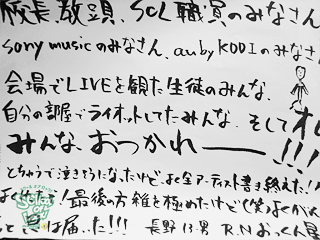 校長、教頭、SCL職員のみなさん
sony musicのみなさん、au by KDDIのみなさ
会場でLIVEを観た生徒のみんな、
自分の部屋でライオットしてたみんな、そしてオレ
みんな、おつかれー!!!
とちゅうで泣きそうになったけど、よく全アーティスト書き終えた!
最後の方雑を極めたけど(笑)よくがん
届いた!!! 長野 13 男 R.N おっくん